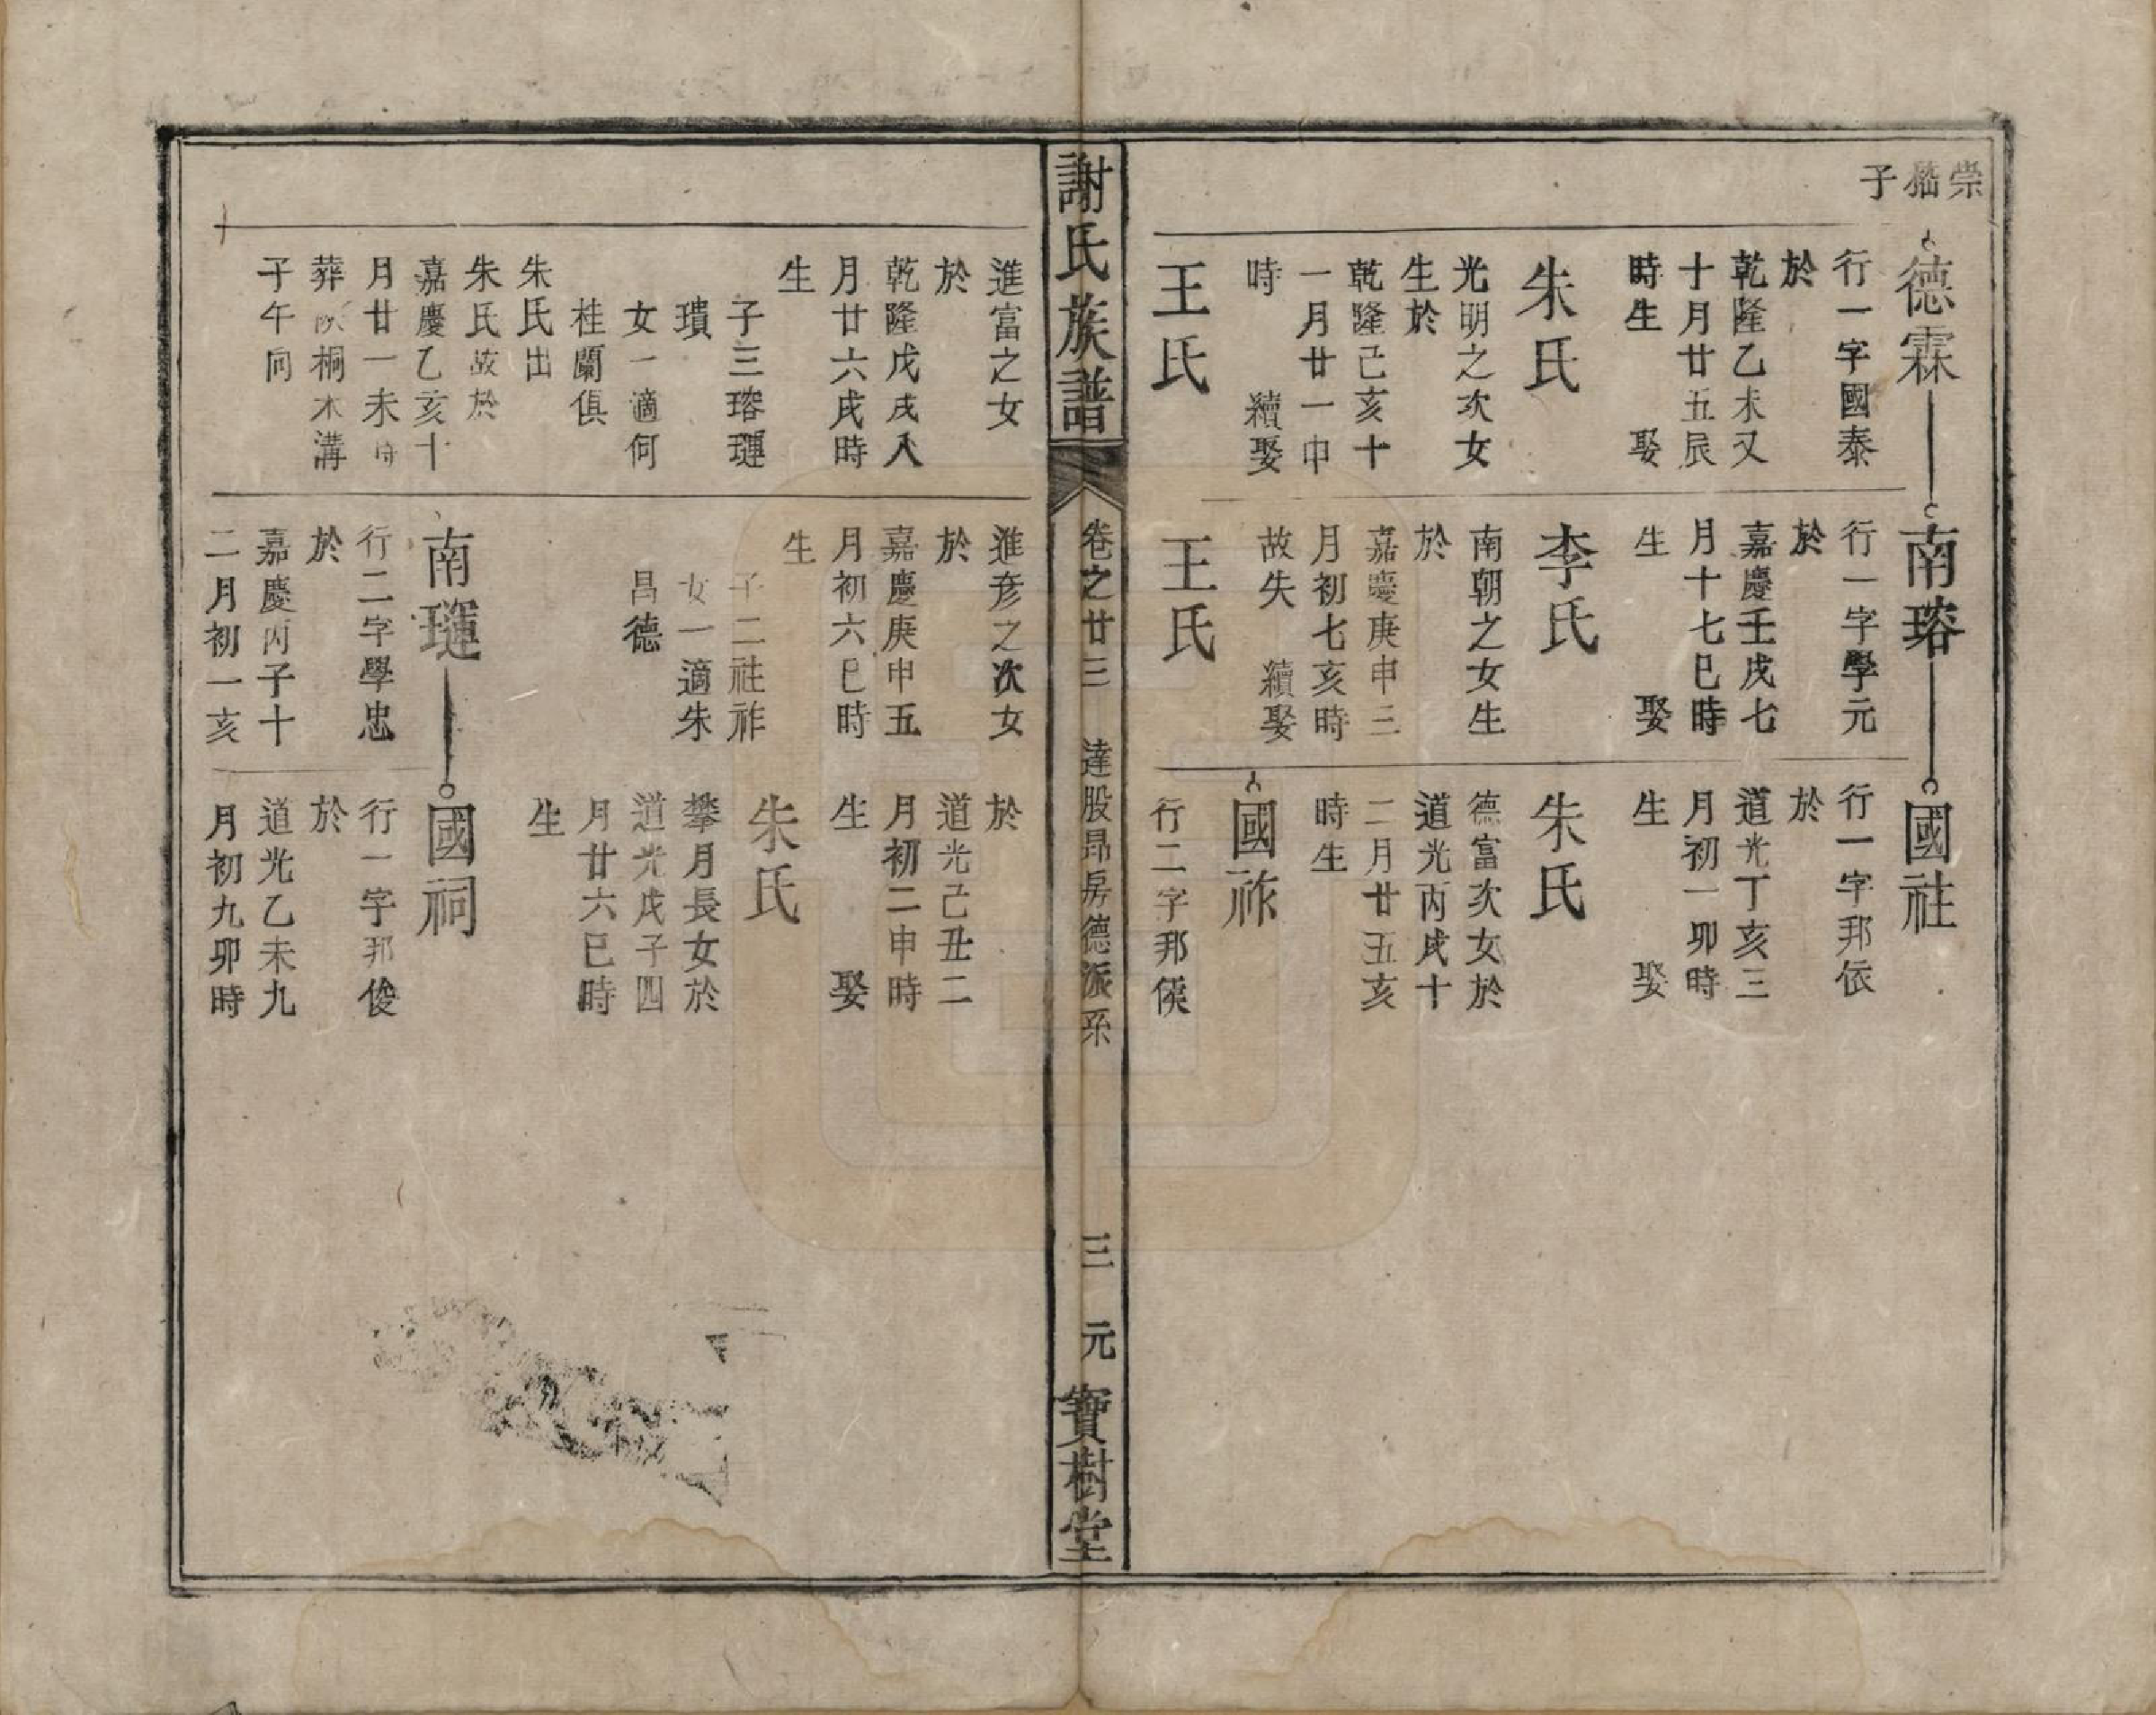 崇
子
德霖
行一字國泰
於
乾隆乙未又
十月廿五辰
時生　娶
朱氏
光明之次女
生於
乾隆己亥十
一月廿一申
時　續娶
王氏
南瑢
行一字學元
於
嘉慶壬戌七
月十七巳時
生　娶
李氏
南朝之女生
於
嘉慶庚申三
月初七亥時
故失　續娶
王氏
國社
行一字邦依
於
道光丁亥三
月初一卯時
生　娶
朱氏
德富次女於
道光丙戌十
二月廿五亥
時生
國祚
行二字邦俟
謝氏族譜
卷之廿三　達股昂房德派系
三　元
寶樹堂
進富之女
於
乾隆戊戌八
月廿六戌時
生
子三瑢璉
璝
女一適何
桂蘭俱
朱氏出
朱氏故於
嘉慶乙亥十
月廿一未時
葬桐木溝
子午向
進彦之次女
於
嘉慶庚申五
月初六巳時
生
子二社祚
女一適朱
昌德
南璉
行二字學忠
於
嘉慶丙子十
二月初一亥
於
道光己丑二
月初二申時
生　娶
朱氏
攀月長女於
道光戊子四
月廿六巳時
生
國祠
行一字邦俊
於
道光乙未九
月初九卯時